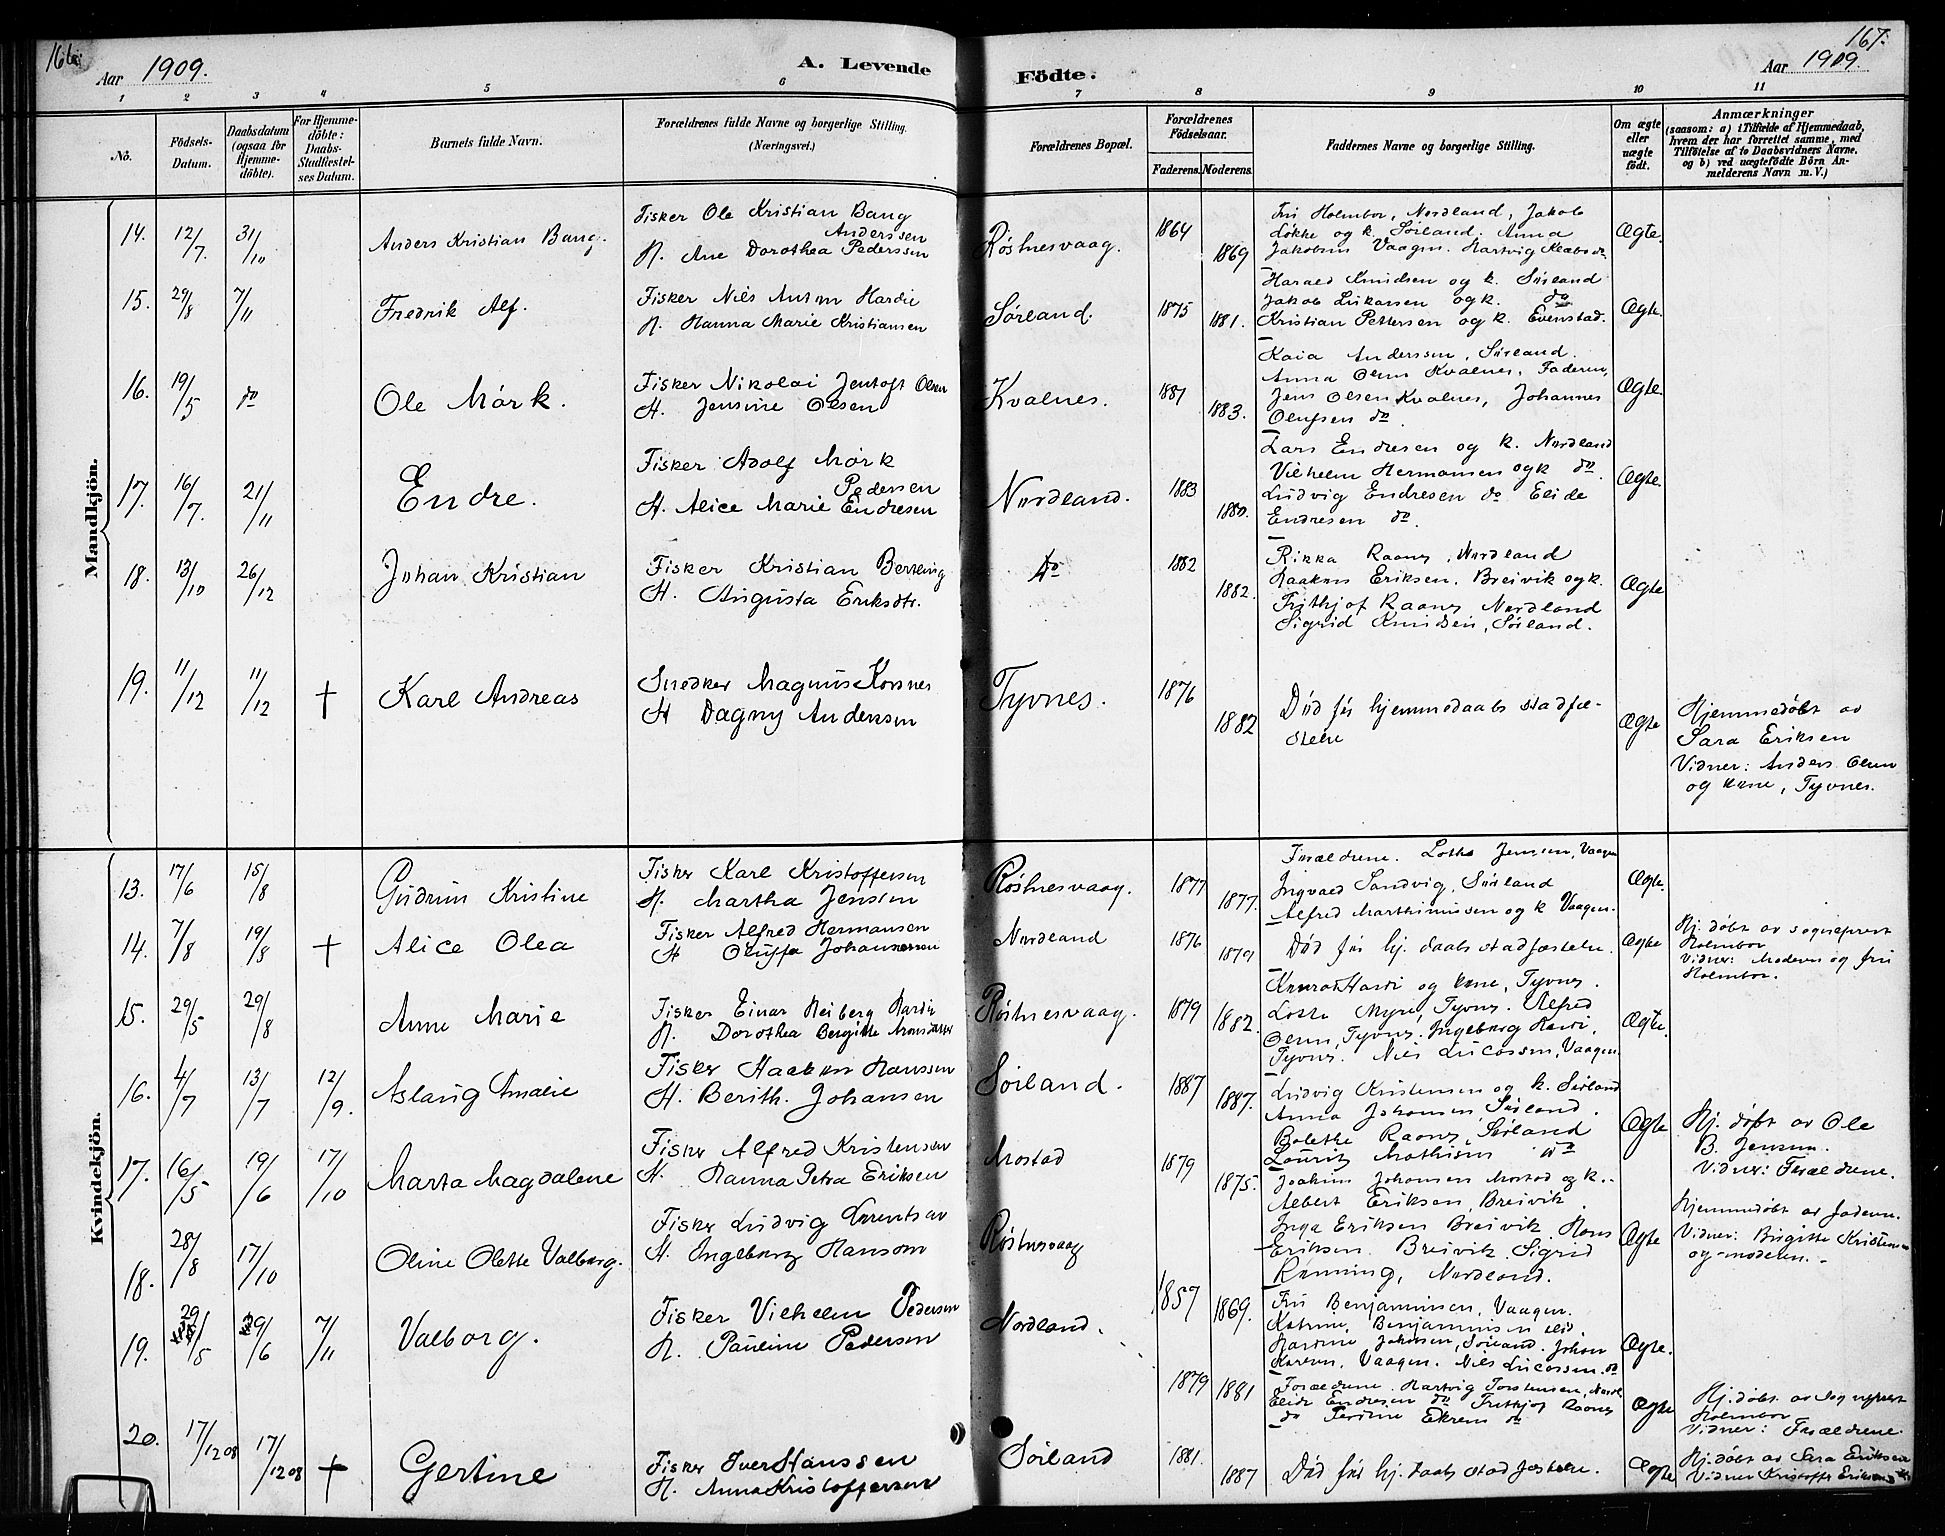 166.
Aar 1909.
A. Levende
Födte.
167.
Aar 1909.
1 2 3 4 5 6 7 8 9 10 11
No.
Födsels-Datum.
Daabsdatum (ogsaa for Hjemme-döbte).
For Hjemme-döbte: Daabs-Stadfæstel-ses Datum.
Barnets fulde Navn.
Forældrenes fulde Navne og borgerlige Stilling.
(Næringsvei.)
Forældrenes Bopæl.
Forældrenes Födselsaar.
Faderens. Moderens.
Faddernes Navne og borgerlige Stilling.
Om ægte eller uægte födt.
Anmærkninger
(saasom: a) i Tilfælde af Hjemmedaab, hvem der har forrettet samme, med Tilföielse af to Daabsvidners Navne, og b) ved uægtefödte Börn An-melderens Navn m. V.)
Mandkjön.
14. 12/7. 31/10 Anders Kristian Bang.
Fisker Ole Kristian Bang
Anderssen
H. Ane Dorothea Pederssen
Røstnesvaag. 1864 1869
Fru Holmbor, Nordland, Jakob
Løkke og k. Sørland. Anna
Jakobsen Vaagen. Hartvig
Ægte.
15. 29/8 7/11 Fredrik Alf.
Fisker Nils Anton Hardie
H. Hanna Marie Kristiansen
Sørland. 1875 1881.
Harald Knudsen og k. Sørland
Jakob Lukassen og k. do
Kristian Pettersen og k. Evenstad.
Ægte.
16. 19/5 do Ole Mörk.
Fisker Nikolai Jentoft Olsen
H. Jensine Olsen
Kvalnes. 1881 1883.
Kaia Anderssen, Sørland.
Anna Olsen Kvalnes, Faderen,
Jens Olsen Kvalnes, Johannes
Olufsen do.
Ægte.
17. 16/7. 21/11 Endre.
Fisker Adolf Mörk
Pedersen
H. Alice Marie Endresen
Nordland. 1883 1880.
Lars Endresen og k. Nordland
Vilhelm Hermansen og k do.
Ludvig Endresen do Elide
Endresen do.
Ægte.
18. 13/10 26/12 Johan Kristian
Fisker Kristian Berteng
H. Augusta Eriksdtr.
do 1882 1882.
Rikka Raanes, Nordland
Haakon Eriksen, Breivik og k.
Frithjof Raanes Nordland
Sigrid Knudsen, Sørland.
Ægte
19. 11/12 11/12 † Karl Andreas
Snedker Magnus Korsnes
H Dagny Andersen
Tyvnes. 1876 1882
Död før hjemmedaabs stadfæ-
stelse
Ægte
Hjemmedøbt av
Sara Eriksen
Vidner: Anders Olsen
og kone, Tyvnes.
Kvindekjön.
13. 17/6 15/8 Gudrun Kristine
Fisker Karl Kristoffersen
H. Martha Jensen
Røstnesvaag. 1877 1877.
Forældrene. Lotha Jensen, Vaagen
Ingvald Sandvig, Sørland
Alfred Marthinussen og k Vaagen.
Ægte.
14. 7/8 19/8 † Alice Olea
Fisker Alfred Hermansen
H Oluffa Johannessen
Nordland 1876 1879
Död før hj. daabs stadfæstelse.
Ægte
Hj. døbt av sogneprest
Holmbor
Vidner: Moderen og fru
Holmbor.
15. 29/5 29/8 Anne Marie
Fisker Einar Heiberg Hardie
H. Dorothea Bergitte
Røstnesvaag. 1879 1882.
Konrad Hardi og kone, Tyvnes.
Lotte Myre, Tyvnes. Alfred
Olsen, Tyvnes. Ingeborg Hardi,
Tyvnes. Nils Lucassen, Vaagen
Ægte.
16. 4/7 13/7 12/9. Aslaug Amalie
Fisker Haakon Hanssen
H. Berith. Johansen
Sørland. 1887 1887.
Ludvig Kristensen og k. Sørland
Anna Johansen, Sørland.
Bolethe Raanes, Sørland
Lauritz Mathisen do
Ægte
Hj. døbt av Ole
B. Jensen.
Vidner: Forældrene.
17. 16/5 19/6 17/10 Marta Magdalene
Fisker Alfred Kristensen
H. Hanna Petra Eriksen
Mostad 1879 1875.
Joakim Johansen Mostad og k.
Albert Eriksen, Breivik.
Inga Eriksen Breivik, Hans
Eriksen Breivik. Sigrid
Rønning, Nordland.
Ægte
Hjemmedøbt av faderen.
Vidner: Birgitte Kristensen
og moderen.
18. 28/8 17/10 Oline Olette Valborg.
Fisker Ludvig Lorentsen
H. Ingeborg Hansen
Røstnesvaag 1857 1869.
Fru Benjaminsen, Vaagen.
Katrine Benjaminsen
Hardine Johansen, Sørland. Johan
Larsen, Vaagen. Nils Lucassen do
Ægte.
19. 29/5 29/6 7/11 Valborg.
Fisker Vilhelm Pedersen
H. Pauline Pedersen
Nordland. 1879 1881
Forældrene. Hartvig Torstensen, Nordl.
Elide Endresen do Frithjof Raanes
do do
Ægte
Hj. døbt av Sogneprest
Holmbor
Vidner: Forældrene
20. 17/12 08 17/12 08 † Gertine
Fisker Iver Hanssen
H. Anna Kristoffersen
Sørland 1881. 1887
Död før hj. daabs stadfæstelse.
Ægte
Hj. døbt av Sara Eriksen
Vidner Kristoffer Eriksen